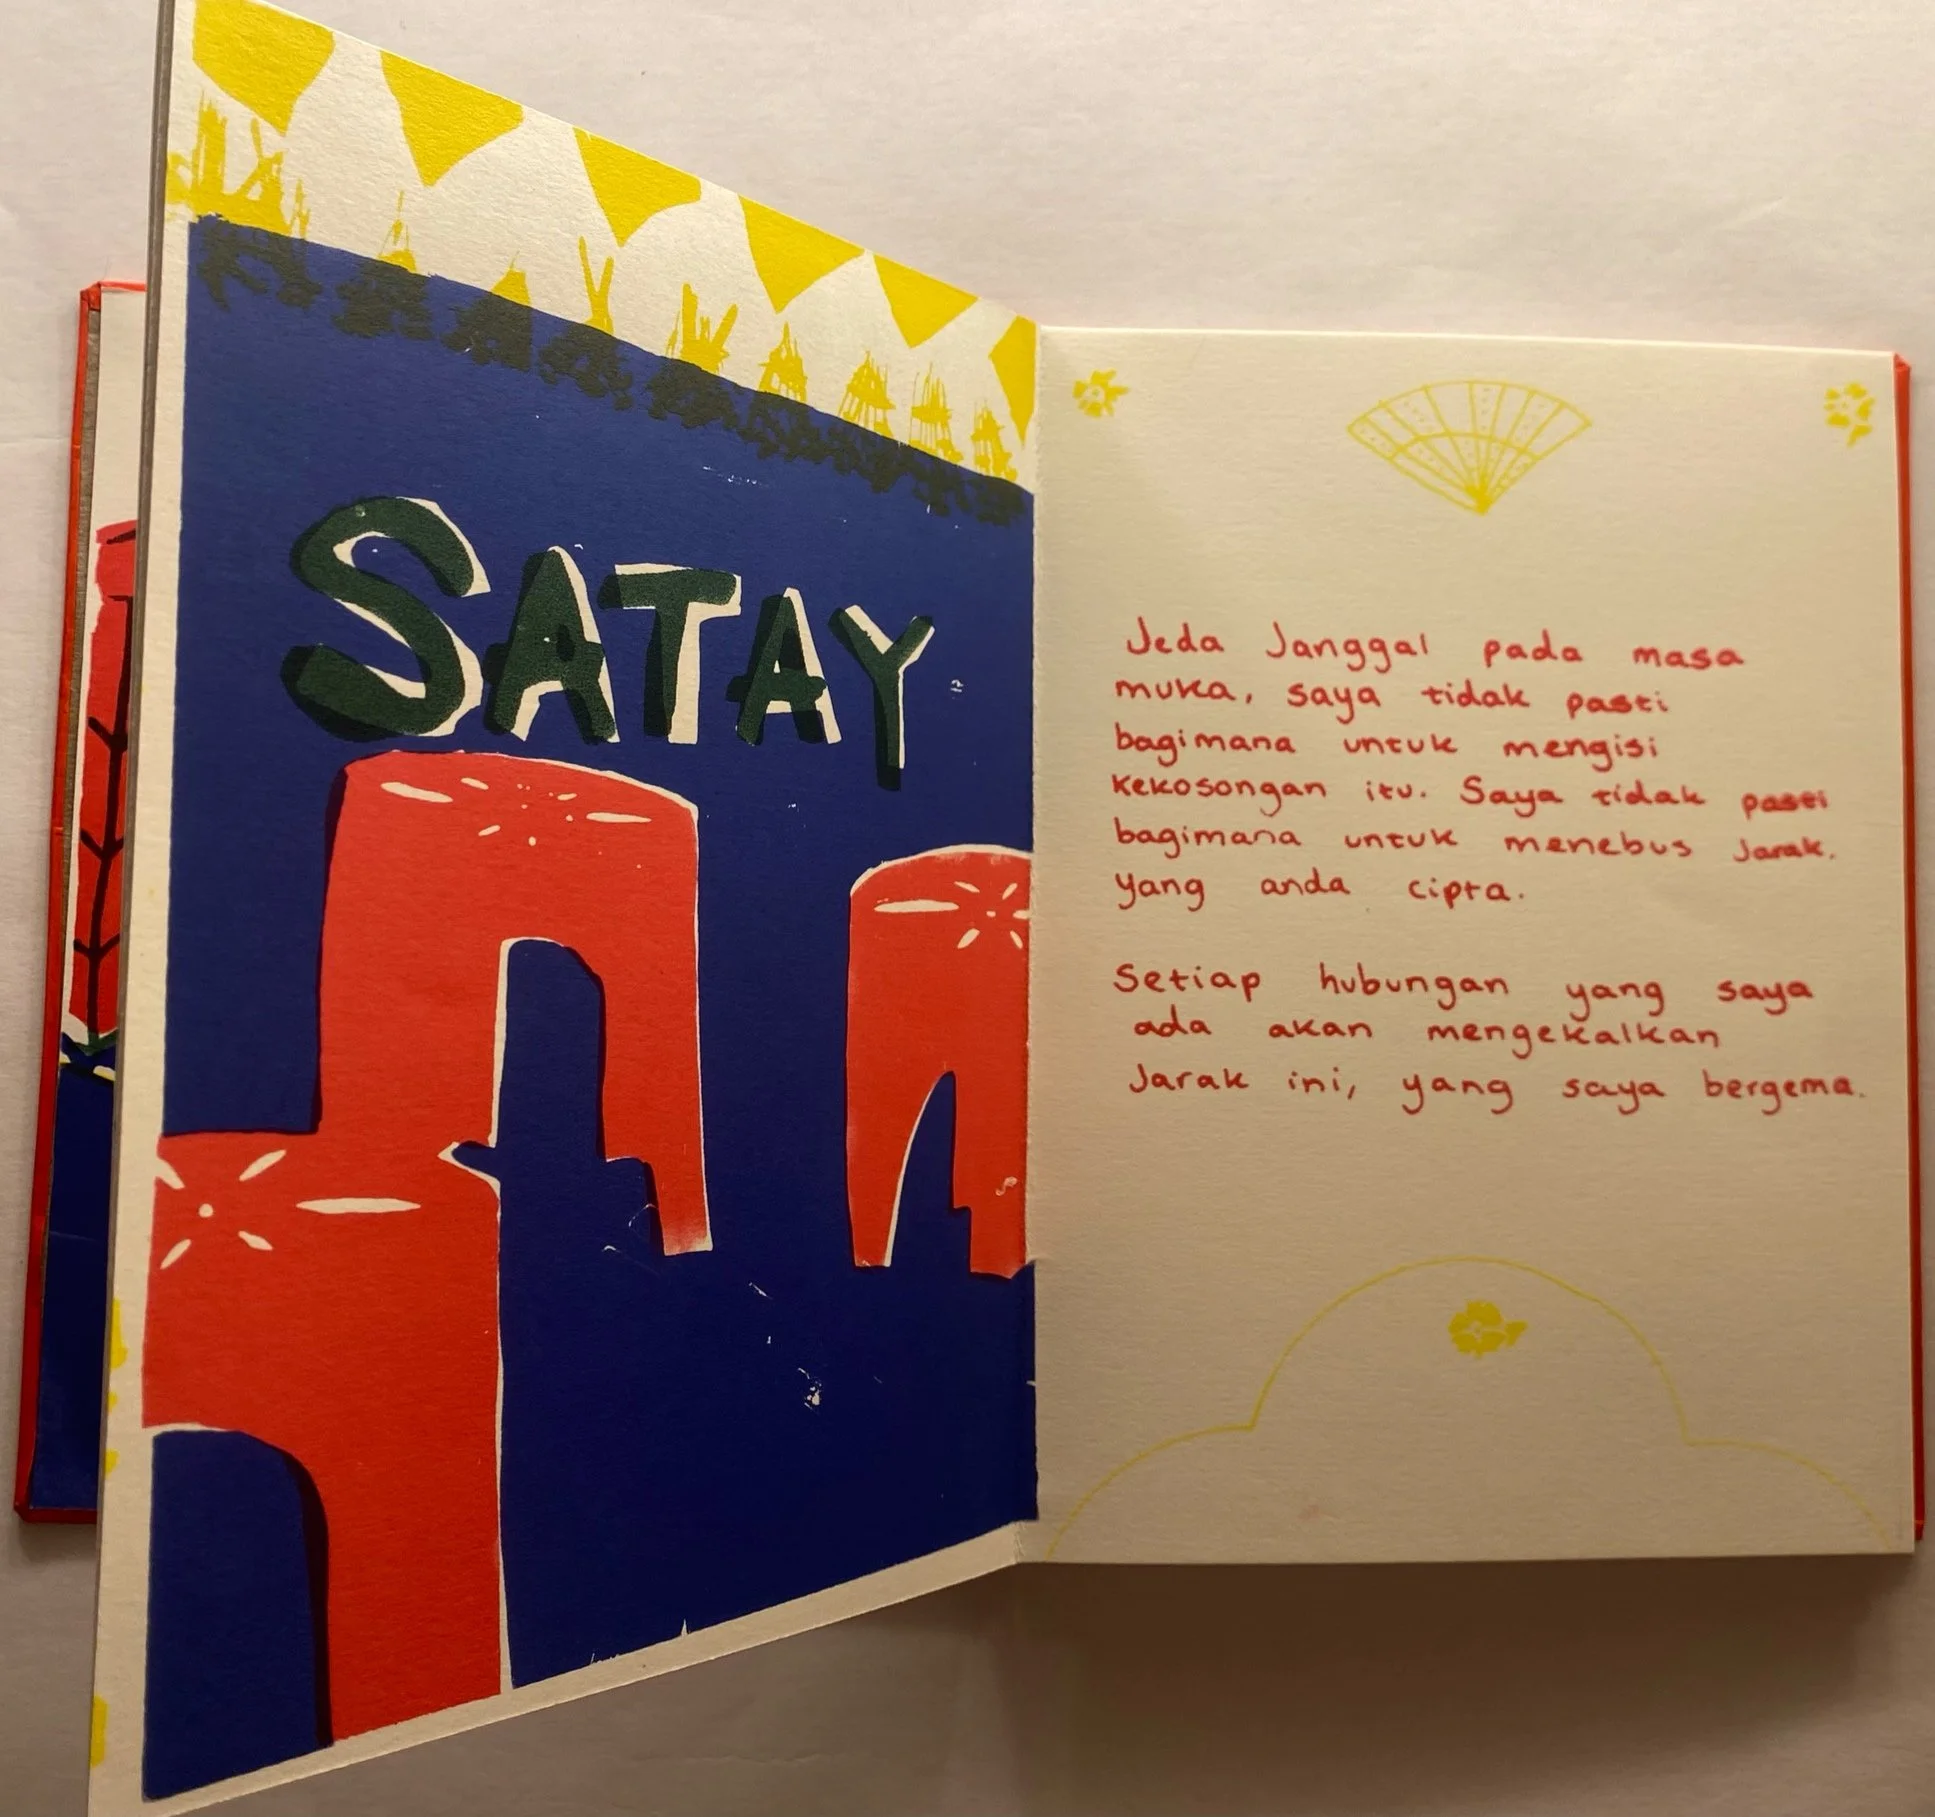 SATAY
Jeda Janggal pada masa
muka, saya tidak pasti
bagimana untuk mengisi
kekosongan itu. Saya tidak pasti
bagimana untuk menebus Jarak.
yang anda cipta.
Setiap hubungan yang saya
ada akan mengekalkan
Jarak ini, yang saya bergema.